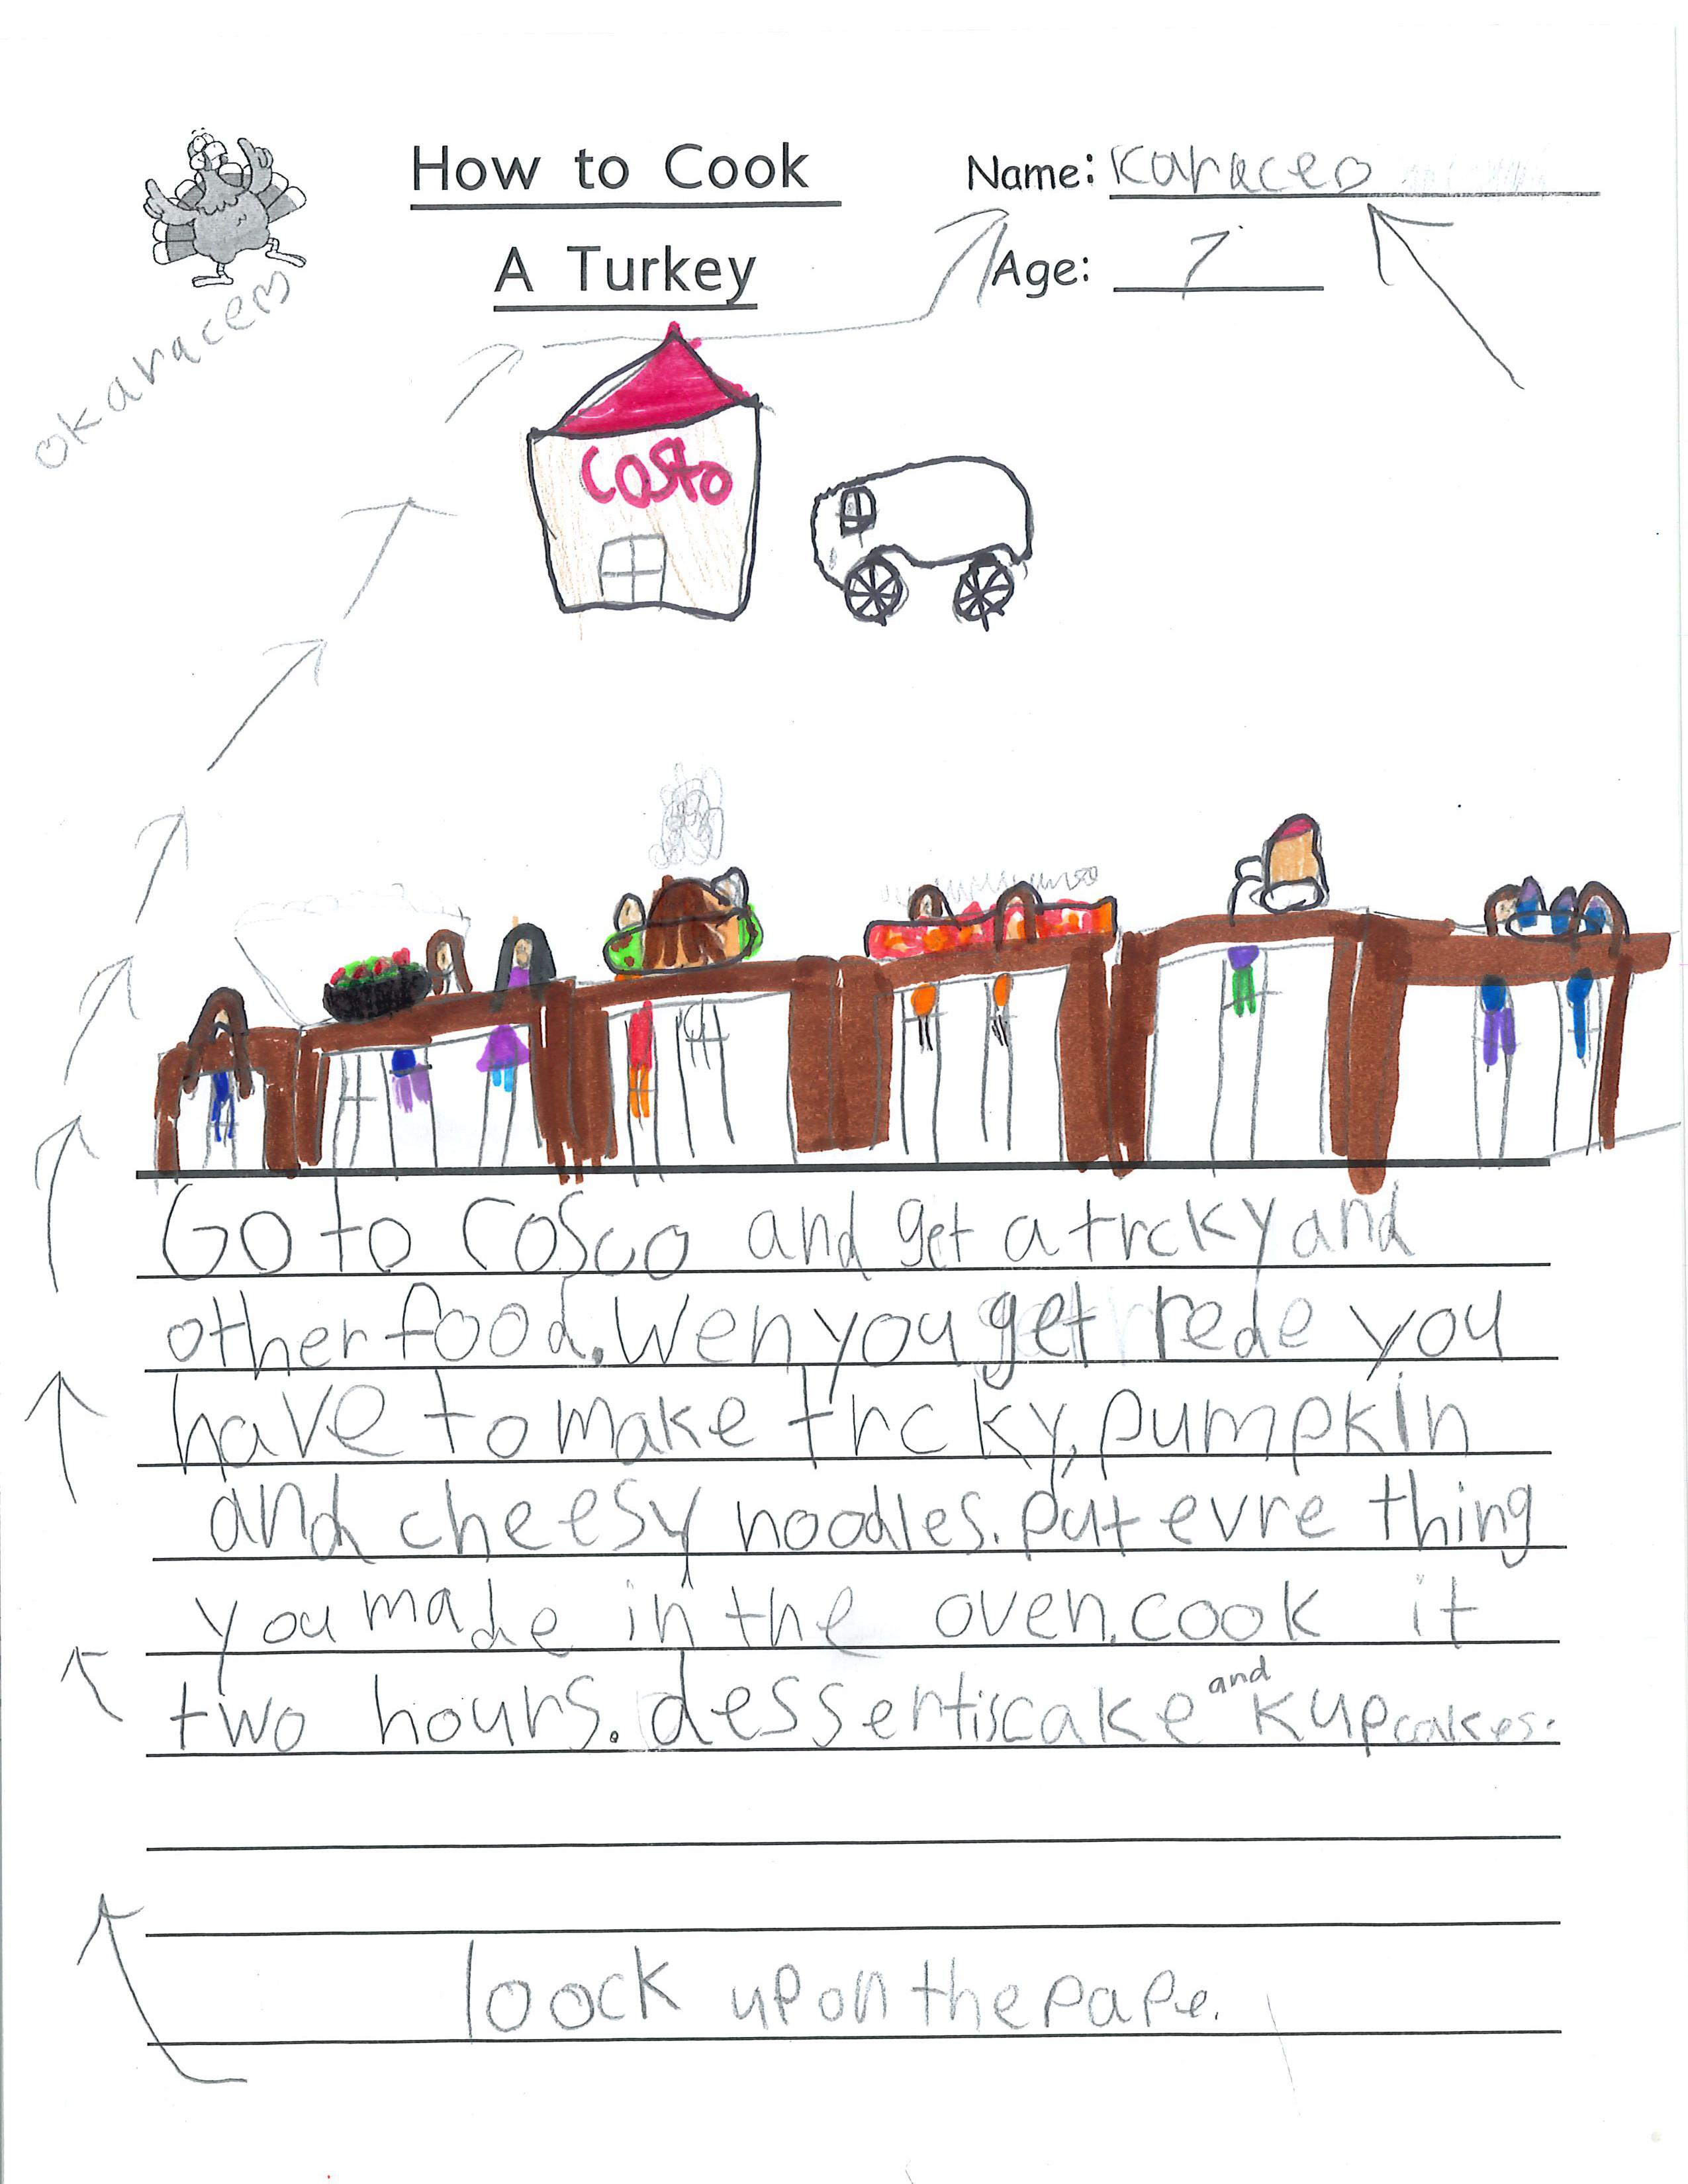 How to Cook
A Turkey
Name: Karacem
Age: 7
okaracem
Costo
Go to Cosco and get a trcky and
other food. Wen you get rede you
have to make trcky, pumpkin
and cheesy noodles. put evre thing
you made in the oven. cook it
two hours. dessert is cake and kupcakes.
loock up on the pape.